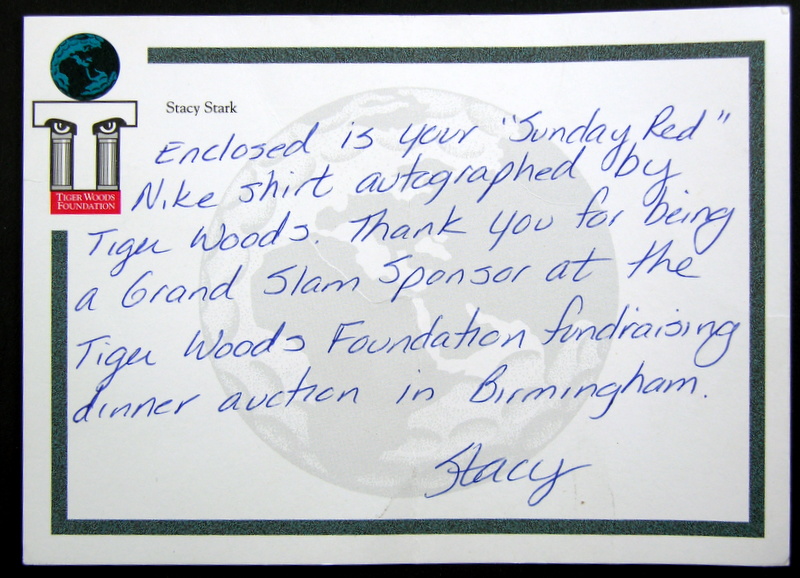 Stacy Stark
TIGER WOODS
FOUNDATION
Enclosed is your "Sunday Red"
Nike shirt autographed by
Tiger Woods. Thank you for being
a Grand Slam Sponsor at the
Tiger Woods Foundation fundraising
dinner auction in Birmingham.
Stacy